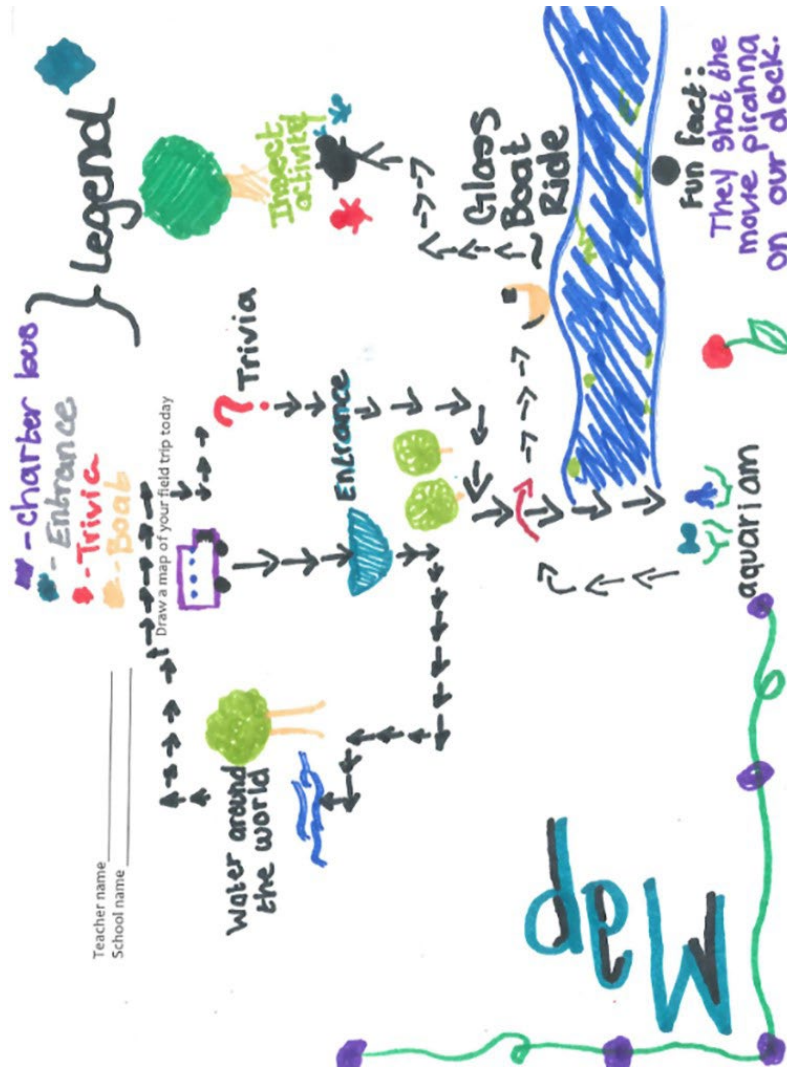 Teacher name
School name
Draw a map of your field trip today
-Charter bus
-Entrance
-Trivia
-Boat
Legend
Water around
the world
Trivia
Insect
activity
Entrance
Glass
Boat
Ride
Map
aquariam
Fun fact:
They shot the
movie pirahna
on our dock.